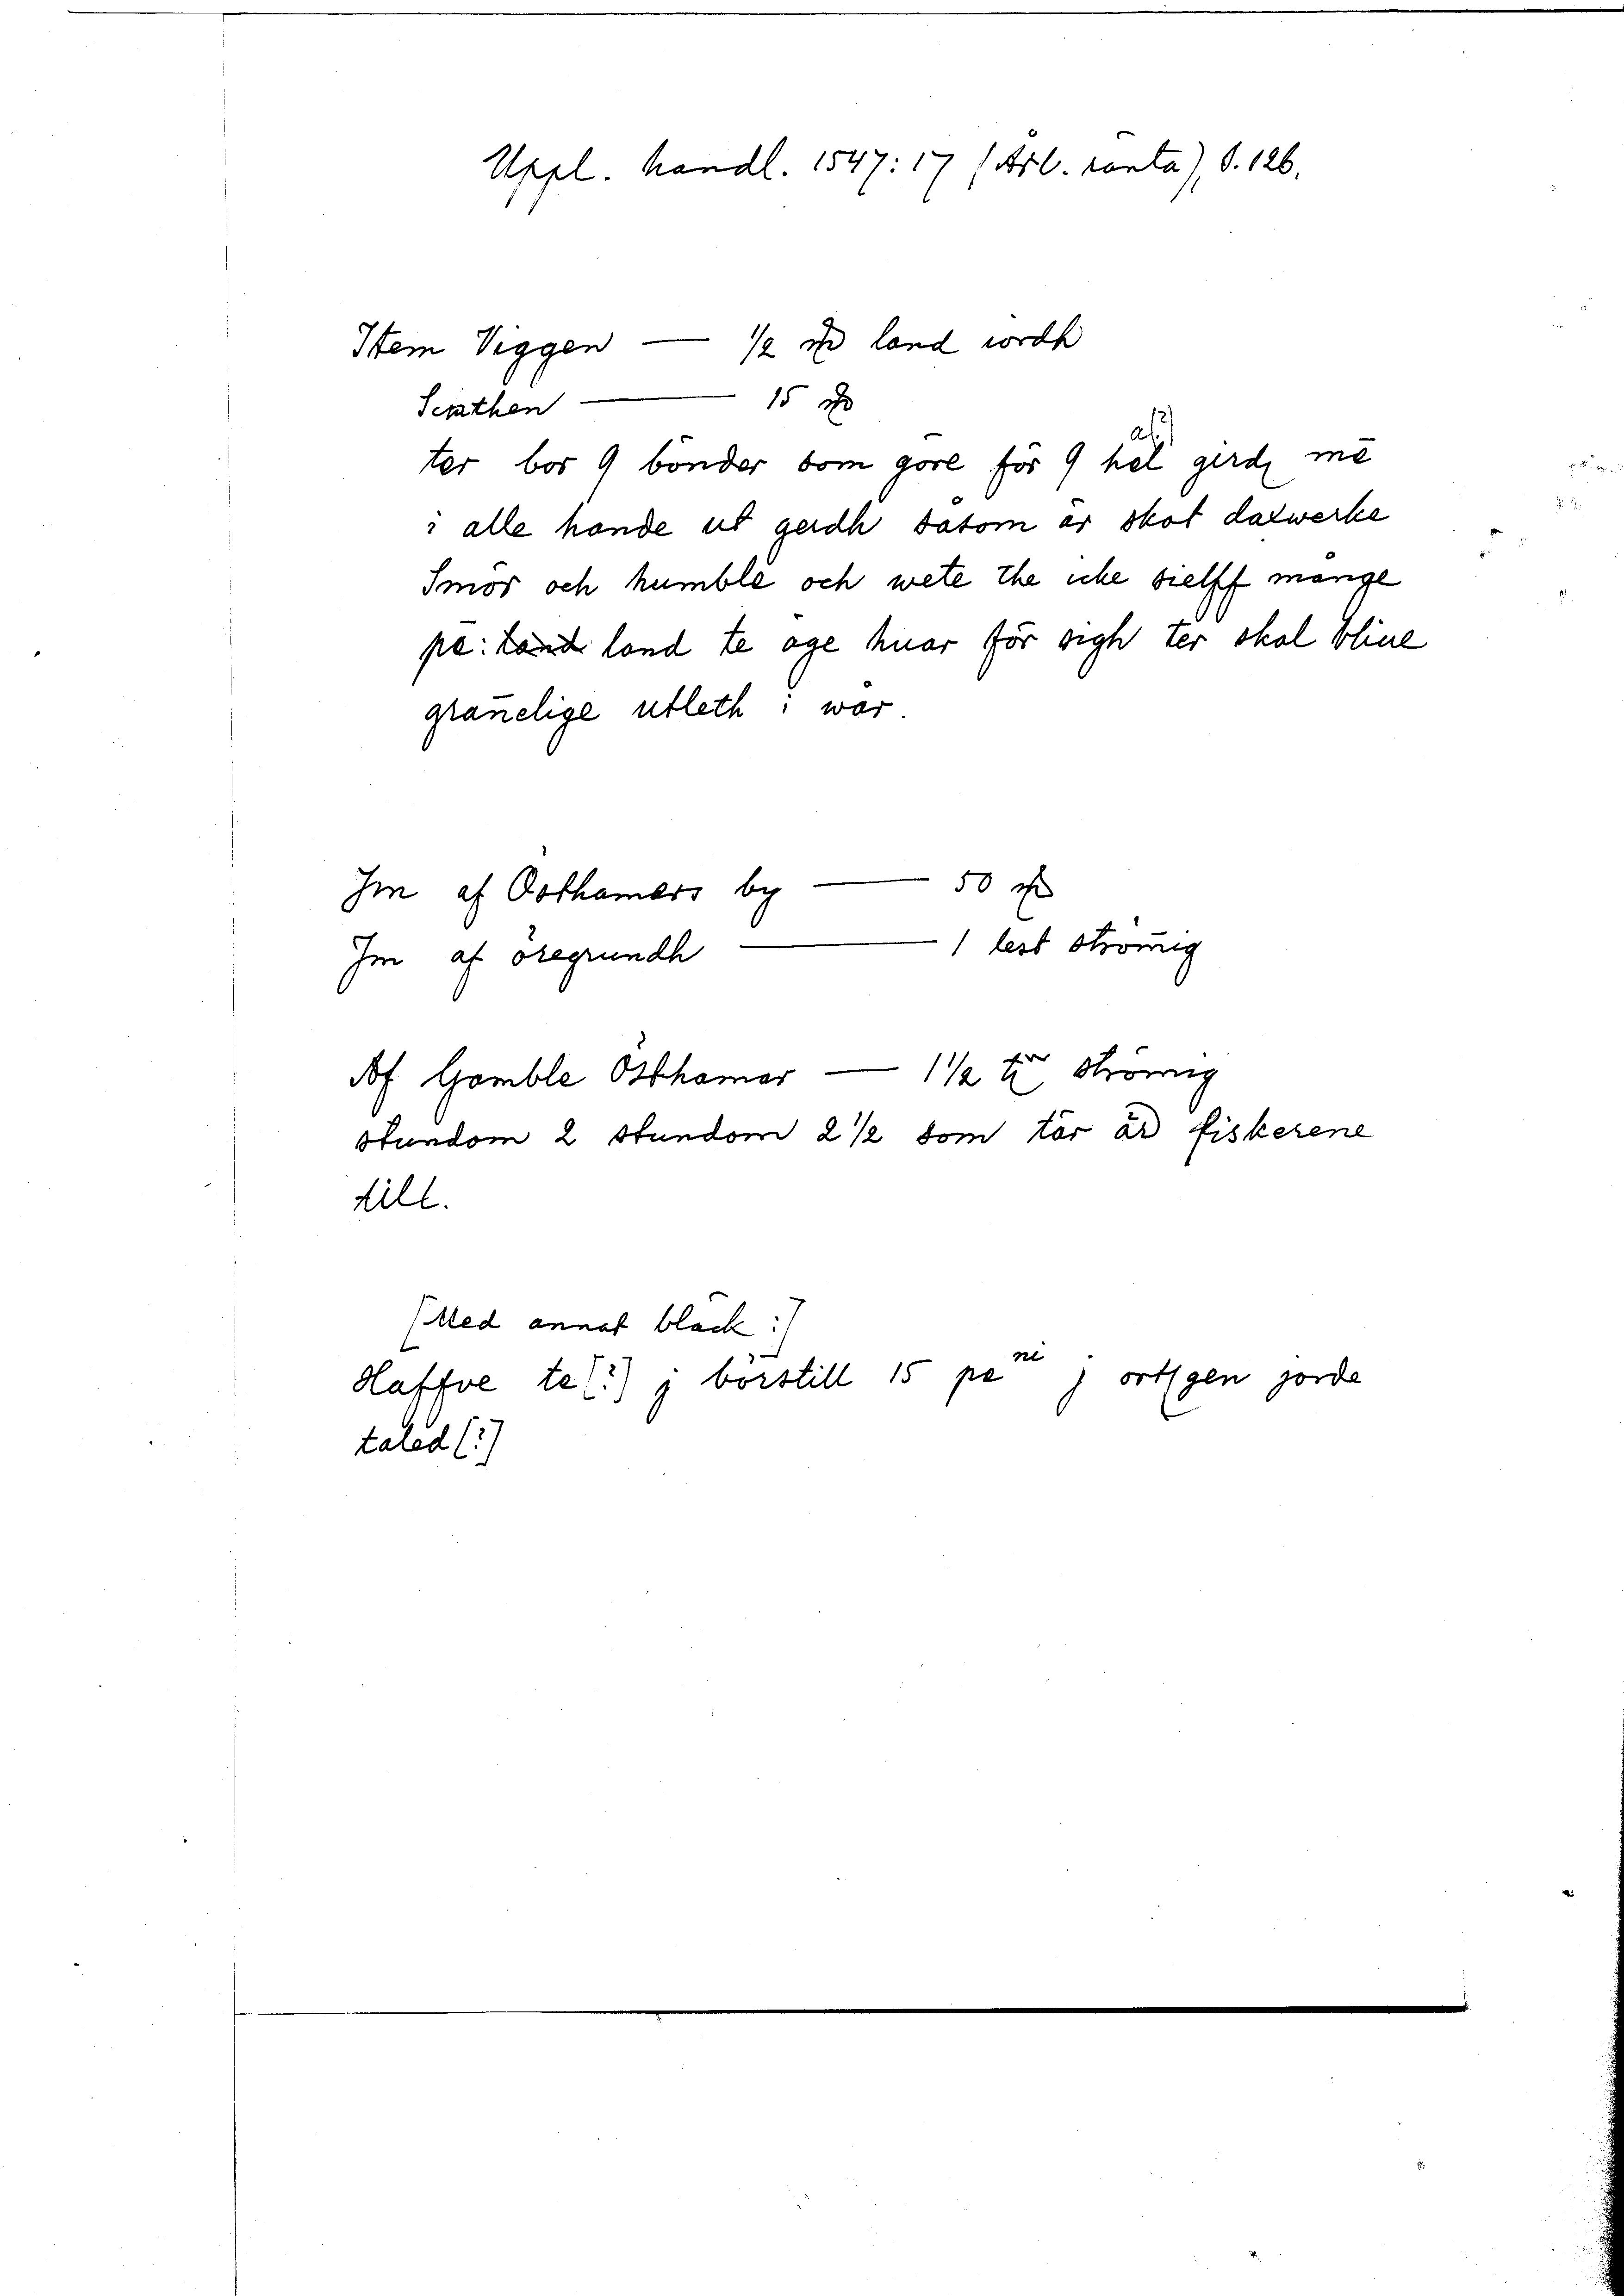 Uppl. handl. 1547:17 (Årl. ränta), s. 126.
Item Viggen — ½ land iordh
Senthen — 15
ter bor 9 bönder som göre för 9 hel gerd mē
al(?)
i alle hande ut gerdh såsom är skot daxwerke
Smör och humble och wete the icke sielff månge
pe: land land te äge huar för sigh ter skal bliue
gran̄elige utleth i wår.
Jm af Östhamars by — 50
Jm af öregrundh — 1 lest ström̄ig
Af Gamble Östhamar — 1½ ström̄ig
stundom 2 stundom 2½ som tär är fiskerene
till.
[Med annat bläck:]
Haffve te(?) j börstill 15 pe ni j ortgen jorde
taled (?)